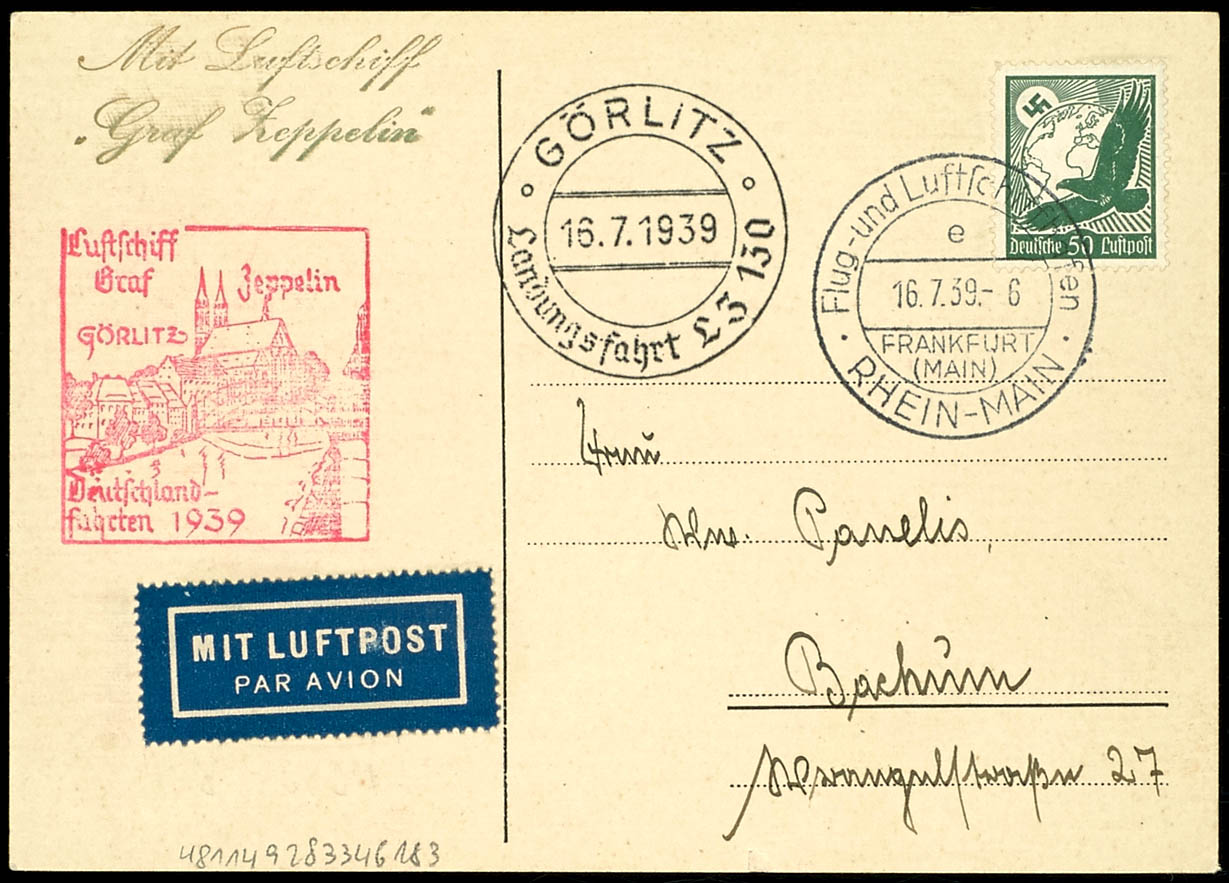 Mit Luftschiff
„Graf Zeppelin“
Luftschiff
Graf Zeppelin
GÖRLITZ
Deutschland-
fahrten 1939
MIT LUFTPOST
PAR AVION
GÖRLITZ
16.7.1939
Landungsfahrt LZ 130
Deutsche 50 Luftpost
Flug-und Luftschiffhafen
e
16.7.39.- 6
FRANKFURT
(MAIN)
RHEIN-MAIN
Frau
Panelis,
Bochum
Wrangelstraße 27
4811149283346183